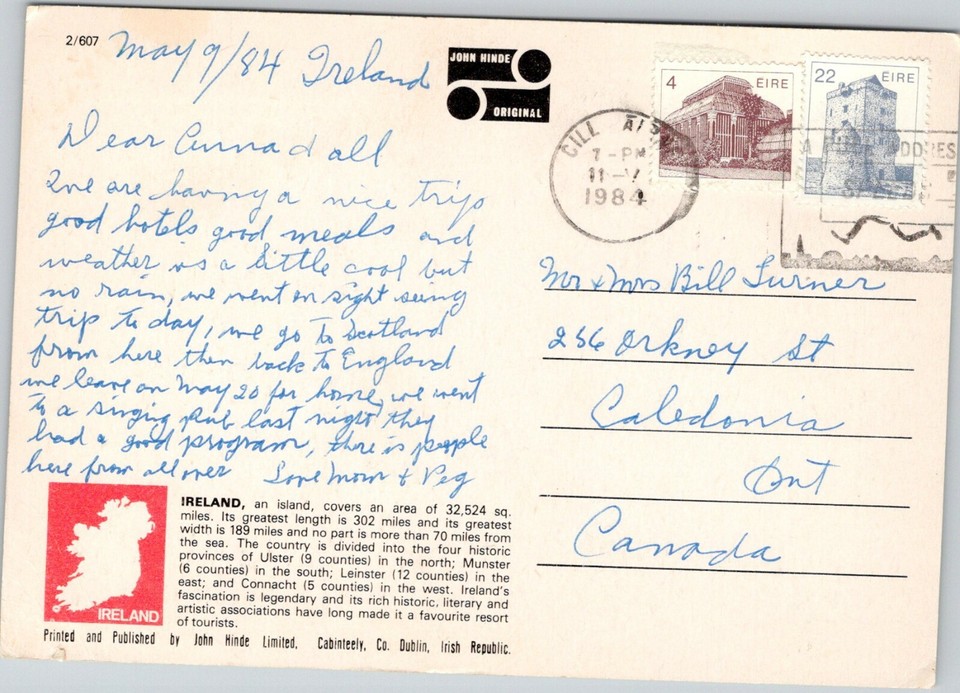 2/607
May 9/84 Ireland
JOHN HINDE
ORIGINAL
4 EIRE
22 EIRE
CILL
7-PM
11-V
1984
Dear Anna & all
We are having a nice trip
good hotels good meals and
weather is a little cool but
no rain, we went on sight seeing
trip to day, we go to Scotland
from here then back to England
we leave on May 20 for home, we went
to a singing pub last night they
had a good program, there is people
here from all over Love Mom & Peg
Mr & Mrs Bill Turner
256 Orkney St
Caledonia
Ont
Canada
IRELAND
IRELAND, an island, covers an area of 32,524 sq.
miles. Its greatest length is 302 miles and its greatest
width is 189 miles and no part is more than 70 miles from
the sea. The country is divided into the four historic
provinces of Ulster (9 counties) in the north; Munster
(6 counties) in the south; Leinster (12 counties) in the
east; and Connacht (5 counties) in the west. Ireland's
fascination is legendary and its rich historic, literary and
artistic associations have long made it a favourite resort
of tourists.
Printed and Published by John Hinde Limited, Cabinteely, Co. Dublin, Irish Republic.